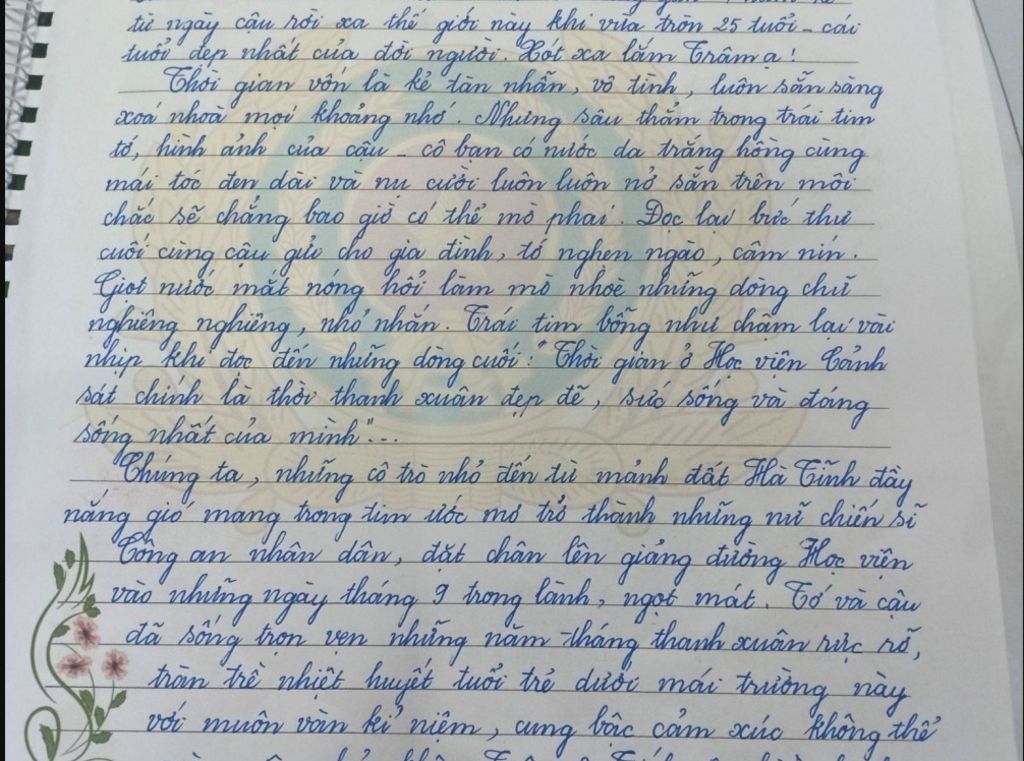 từ ngày cậu rời xa thế giới này khi vừa tròn 25 tuổi - cái
tuổi đẹp nhất của đời người. Xót xa lắm Trâm ạ!
Thời gian vốn là kẻ tàn nhẫn, vô tình, luôn sẵn sàng
xoá nhoà mọi khoảng nhớ. Nhưng sâu thẳm trong trái tim
tớ, hình ảnh của cậu - cô bạn có nước da trắng hồng cùng
mái tóc đen dài và nụ cười luôn luôn nở sẵn trên môi
chắc sẽ chẳng bao giờ có thể mờ phai. Đọc lại bức thư
cuối cùng cậu gửi cho gia đình, tớ nghẹn ngào, câm nín.
Giọt nước mắt nóng hổi làm mờ nhoè những dòng chữ
nghiêng nghiêng, nhỏ nhắn. Trái tim bỗng như chậm lại vài
nhịp khi đọc đến những dòng cuối: "Thời gian ở Học viện Cảnh
sát chính là thời thanh xuân đẹp đẽ, sức sống và đáng
sống nhất của mình"...
Chúng ta, những cô trò nhỏ đến từ mảnh đất Hà Tĩnh đầy
nắng gió mang trong tim ước mơ trở thành những nữ chiến sĩ
Công an nhân dân, đặt chân lên giảng đường Học viện
vào những ngày tháng 9 trong lành, ngọt mát. Tớ và cậu
đã sống trọn vẹn những năm tháng thanh xuân rực rỡ,
tràn trề nhiệt huyết tuổi trẻ dưới mái trường này
với muôn vàn kỉ niệm, cung bậc cảm xúc không thể